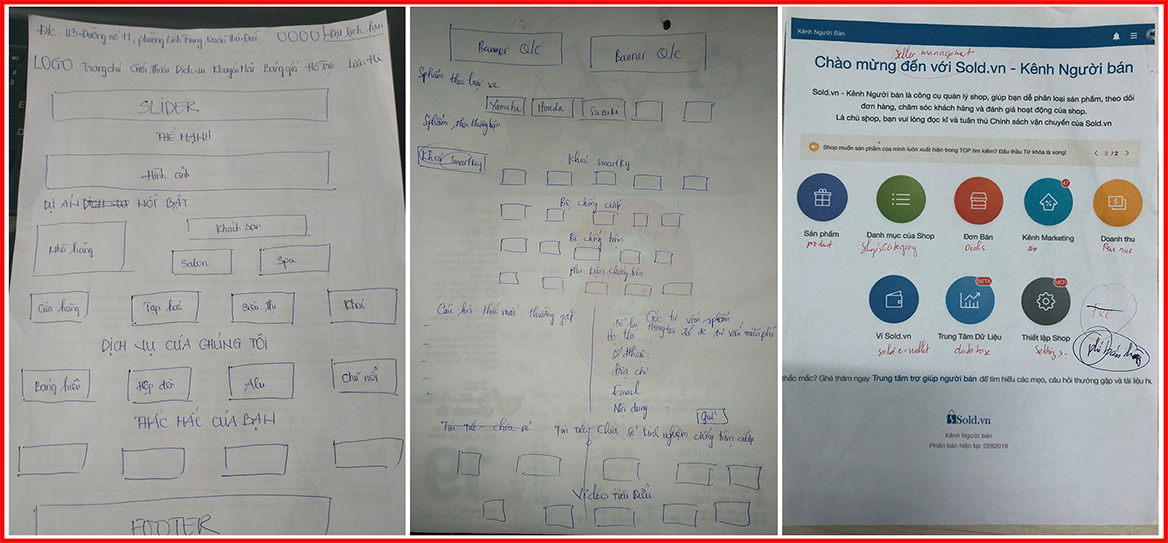 Đ/c: 113-Đường số 11, phường Linh Trung, quận Thủ Đức
Đặt lịch hẹn
LOGO Trang chủ Giới thiệu Dịch vụ Khuyến Mãi Bảng giá Hỗ Trợ Liên Hệ
SLIDER
THẾ MẠNH
Hình ảnh
DỰ ÁN NỔI BẬT
Khách sạn
Nhà hàng
Salon
Spa
Cửa hàng
Tạp hoá
Siêu thị
Khác
DỊCH VỤ CỦA CHÚNG TÔI
Bảng hiệu
Hộp đèn
Alu
Chữ nổi
THẮC MẮC CỦA BẠN
FOOTER
Banner Q/c
Banner Q/c
Sphẩm theo loại xe
Yamaha
Honda
Suzuki
Sphẩm theo thương hiệu
Khoá Smartkey
Khoá smartkey
Bộ chống cướp
Bộ chống trộm
phụ kiện chống trộm
Câu hỏi thắc mắc thường gặp
Góc tư vấn sphẩm
để lại thông tin để đc tư vấn miễn phí
Họ tên
Số thoại
Địa chỉ
Email
Nội dung
Gửi
Tin tức chia sẻ
Tin tức Chia sẻ kinh nghiệm chống trộm cướp
Video tiêu biểu
Kênh Người Bán
Seller management
Chào mừng đến với Sold.vn - Kênh Người bán
Sold.vn - Kênh Người bán là công cụ quản lý shop, giúp bạn dễ phân loại sản phẩm, theo dõi
đơn hàng, chăm sóc khách hàng và đánh giá hoạt động của shop.
Là chủ shop, bạn vui lòng đọc kĩ và tuân thủ Chính sách vận chuyển của Sold.vn
Shop muốn sản phẩm của mình luôn xuất hiện trong TOP tìm kiếm? Đấu thầu Từ khóa là xong!
2 / 2
Sản phẩm
Danh mục của Shop
Đơn Bán
Kênh Marketing
Doanh thu
product
Shop's Category
Deals
Revenue
BETA
MỚI
Ví Sold.vn
Trung Tâm Dữ Liệu
Thiết lập Shop
sold e-wallet
database
Settings
Txe
phí bán hàng
thắc mắc? Ghé thăm ngay Trung tâm trợ giúp người bán để tìm hiểu các mẹo, câu hỏi thường gặp và tài liệu hư
Sold.vn
Kênh Người bán
Phiên bản hiện tại: 0292019